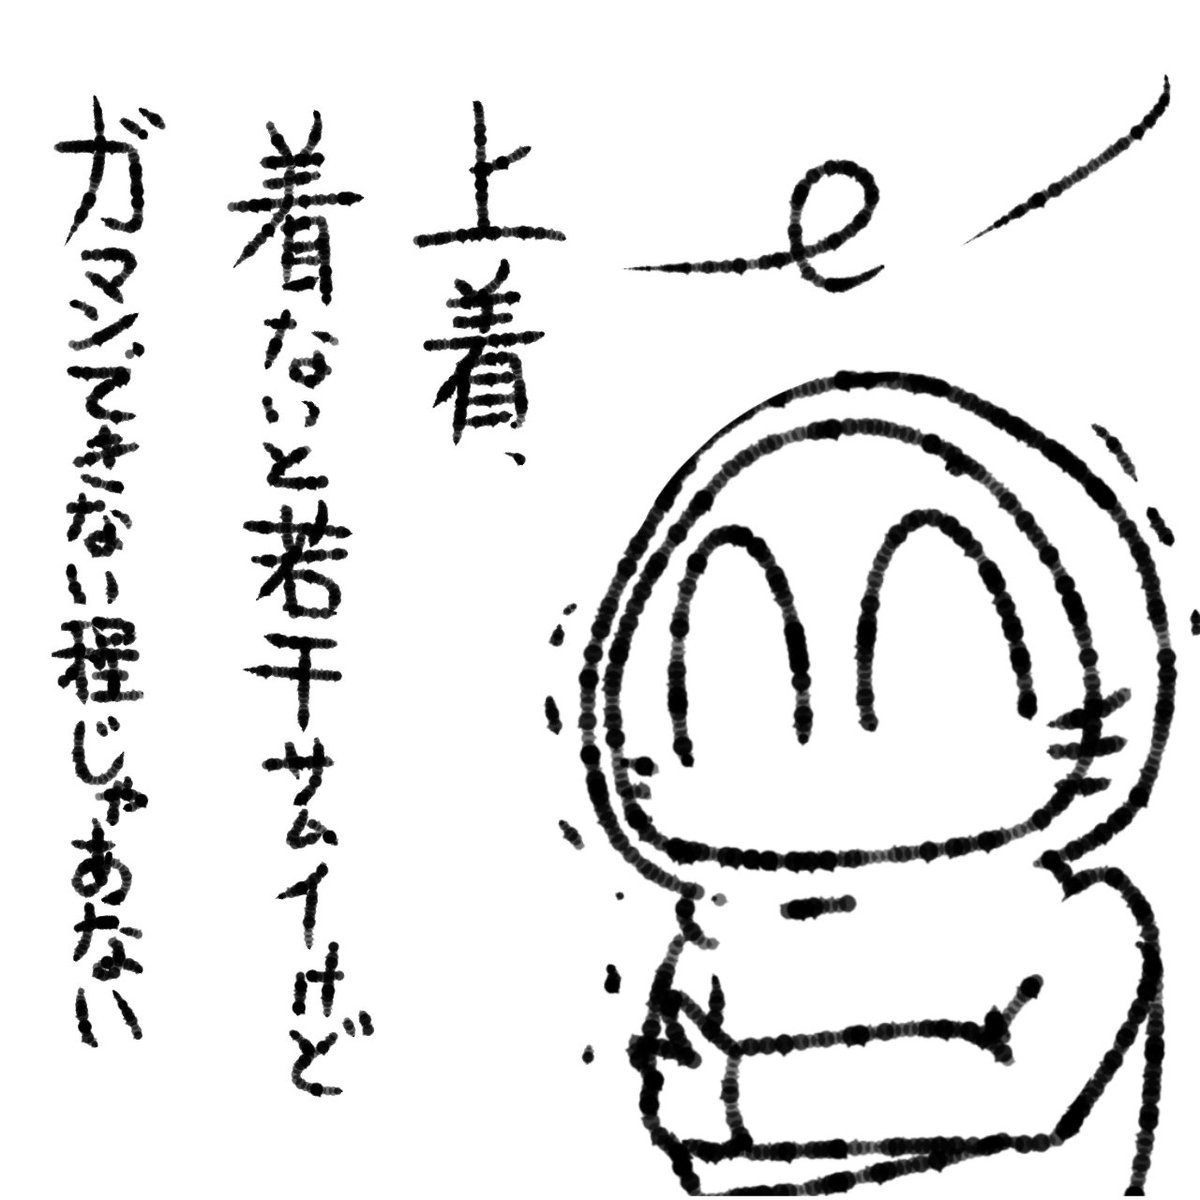 上着、
着ないと若干サムイけど
ガマンできない程じゃあない